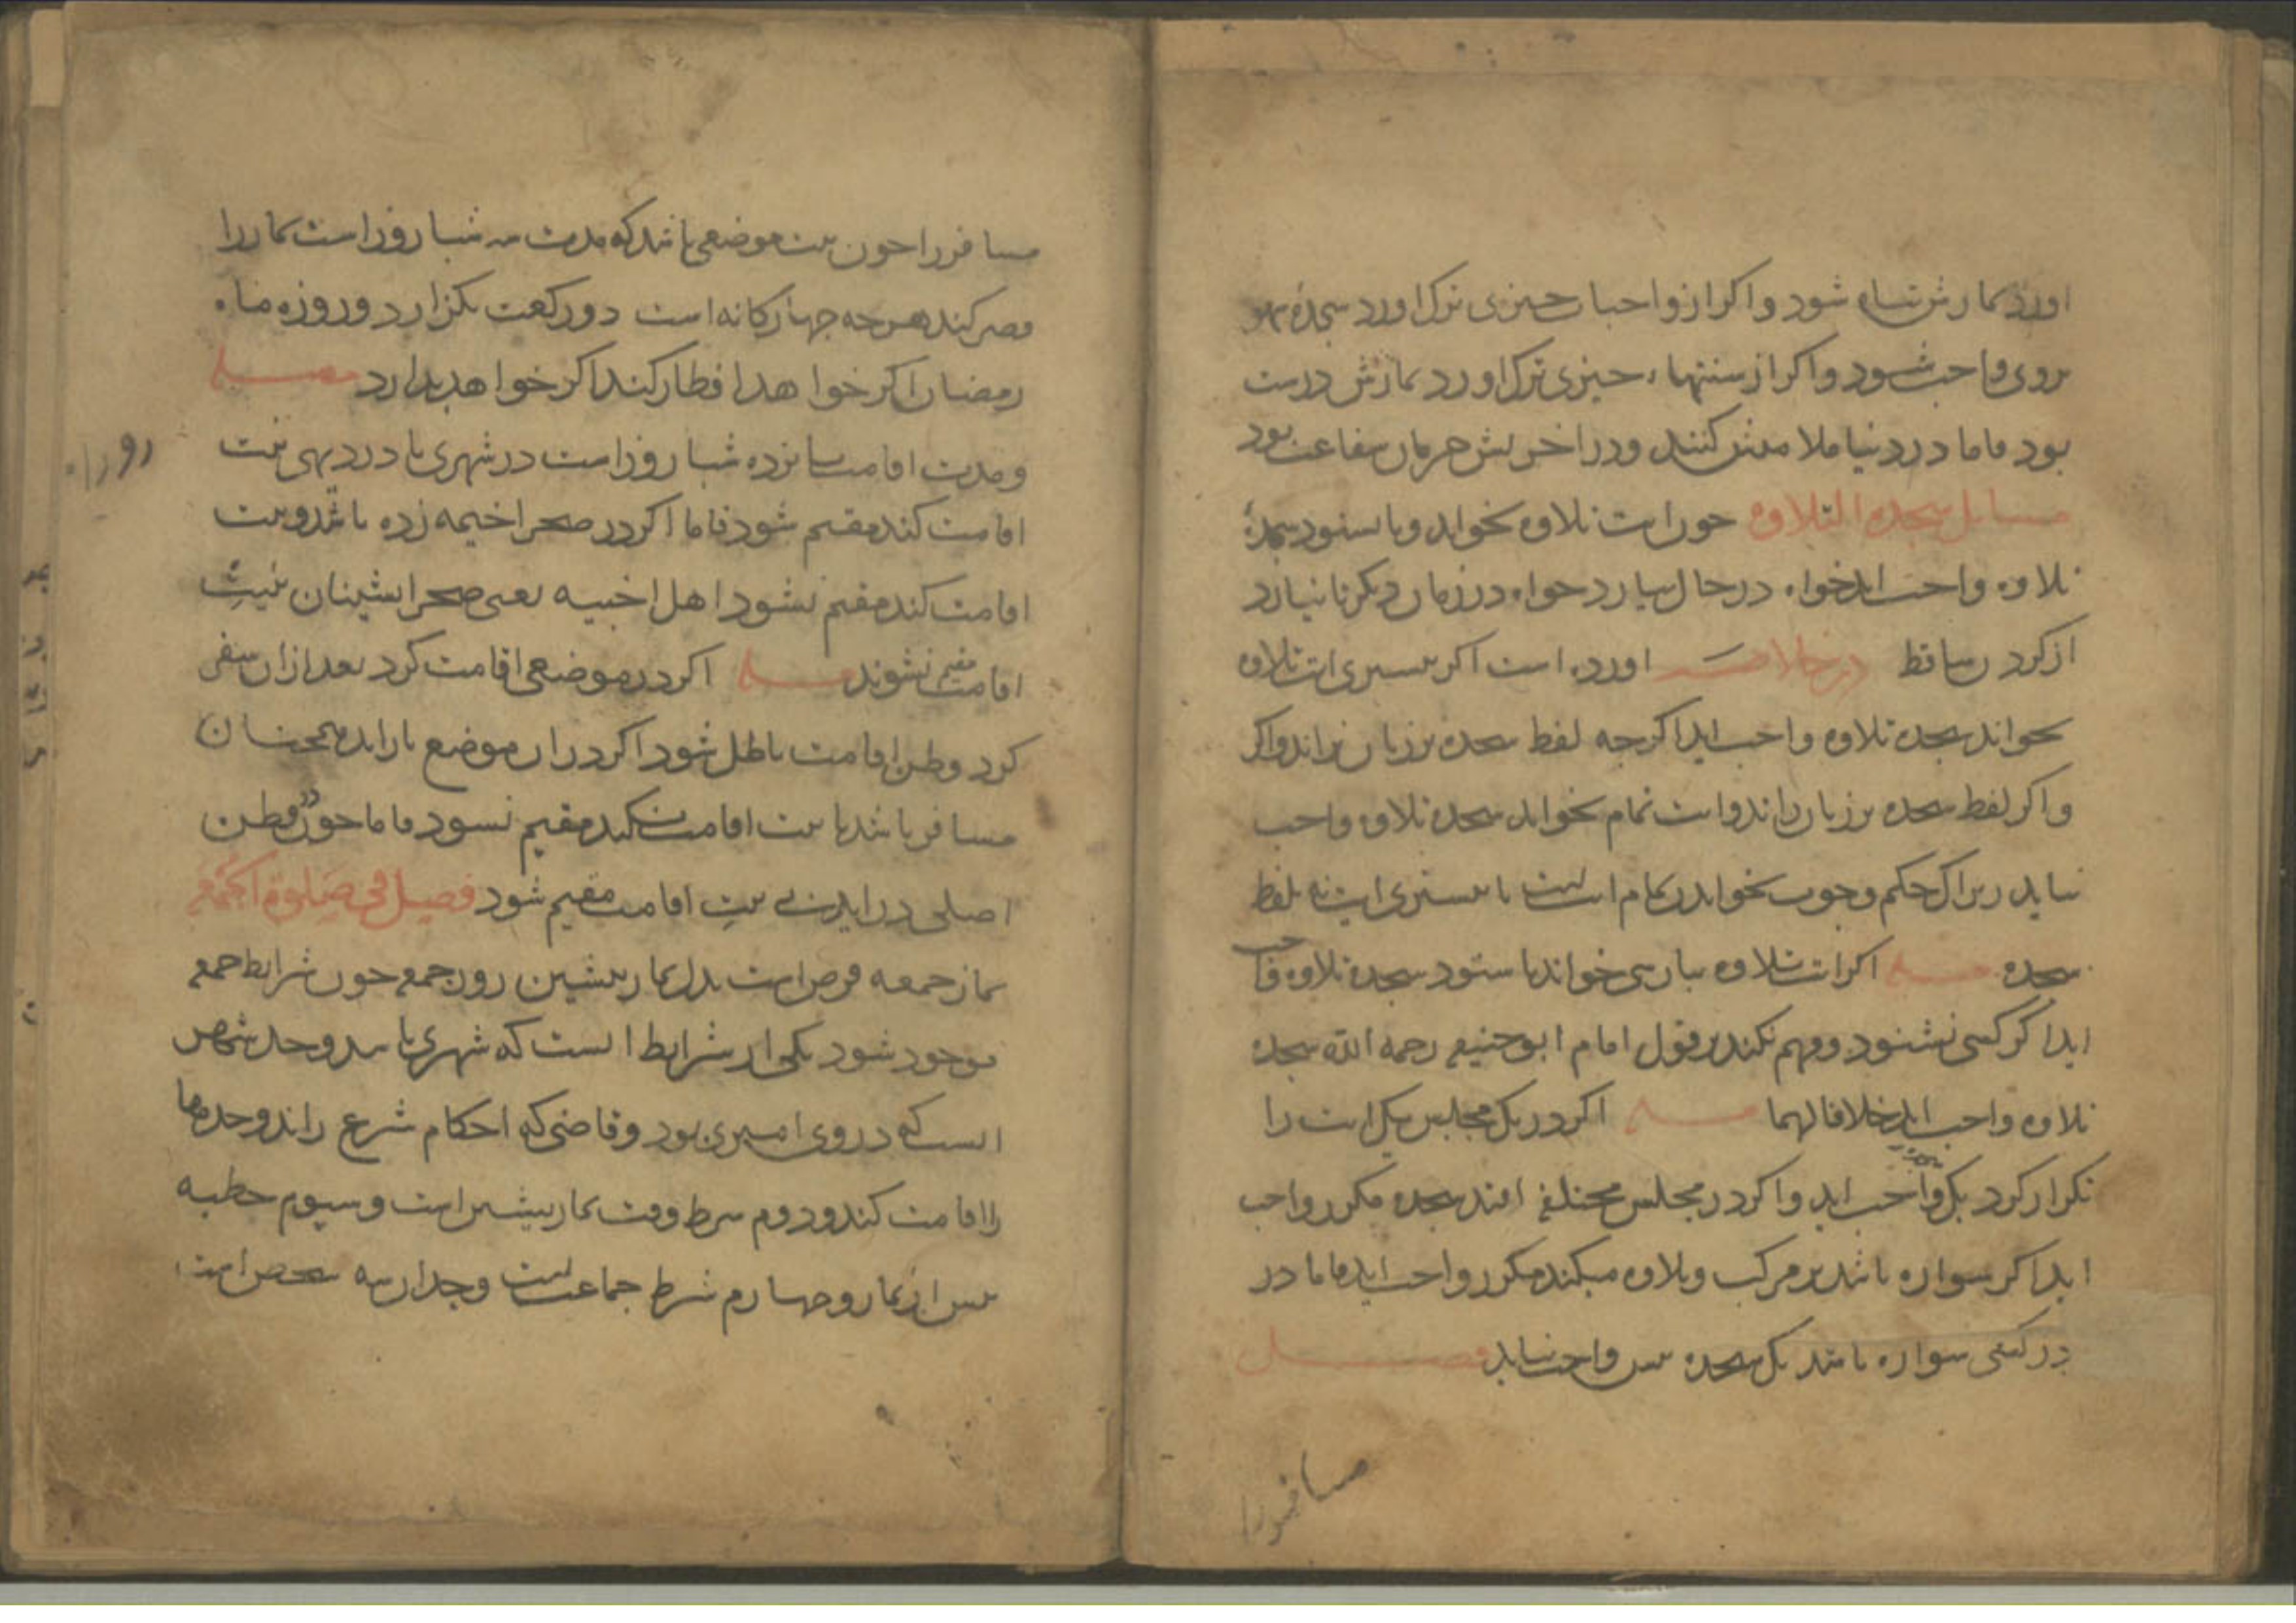 اورد نمازش تباه شود و اکر از واجبات جیزی ترک اورد سجدۀ سهو
بروی واجب شود و اکر از سنتها، جیزی ترک اورد نمازش درست
بود فاما در دنیا ملامتش کنند و در اخرتش حرمان شفاعت بود
مسایل سجده التلاوه جون ایت تلاوه بخواند و یا بشنود سجدۀ
تلاوه واجب اید خواه در حال بیارد خواه در زمان دیکر تا نیارد
از کردن ساقط در خلاصه اورده است اکر بیشتری ایت تلاوه
بخواند سجده تلاوه واجب اید اکرجه لفظ سجده بر زبان نراند و اکر
و اکر لفظ سجده بر زبان راند و ایت تمام نخواند سجده تلاوه واجب
نیاید زیراک حکم وجوب بخواندن تمام ایت است یا بیشتری ایت نه بلفظ
سجده مسله اکر ایت تلاوه ببارسی خواند یا شنود سجده تلاوه واجب
اید اکر کسی نشنود و فهم نکند بر قول امام ابوحنیفه رحمه الله سجده
تلاوه واجب اید خلافا لهما مسله اکر در یک مجلس یک ایت را
تکرار کرد یک واجب اید و اکر در مجلس مختلف افتد سجده مکرر واجب
اید اکر سواره باشد بر مرکب و تلاوه میکند مکرر واجب اید فاما در
در کشتی سواره باشد یک سجده بیش واجب نیاید فصل
مسافر را
مسافر را جون نیت موضعی باشد که مدت سه شبا روز است نماز را
قصر کند هرجه جهارکانه است دو رکعت بکزارد و روزه ماه
رمضان اکر خواهد افطار کند اکر خواهد بدارد مسله
و مدت اقامت بانزده شبا روز است در شهری یا در دیهی نیت
اقامت کند مقیم شود فاما اکر در صحرا خیمه زده باشد و نیت
اقامت کند مقیم نشود اهل اخبیه یعنی صحرا نشینان بنیت
اقامت مقیم نشوند مسله اکر در موضعی اقامت کرد بعد از ان سفر
کرد وطن اقامت باطل شود اکر در ان موضع باز اید همجنان
مسافر باشد تا نیت اقامت نکند مقیم نشود فاما جون در وطن
اصلی در اید بی نیت اقامت مقیم شود فصل فی صلوة الجمعه
نماز جمعه فرض است بدل نماز بیشین روز جمعه جون شرایط جمعه
موجود شود یکی از شرایط انست که شهری باشد و حد شهر
انست که در وی امیری بود و قاضی که احکام شرع راند و حدها
را اقامت کند و دوم شرط وقت نماز بیشین است و سیوم خطبه
بیش از نماز و جهارم شرط جماعت است و جدار سه شخص است